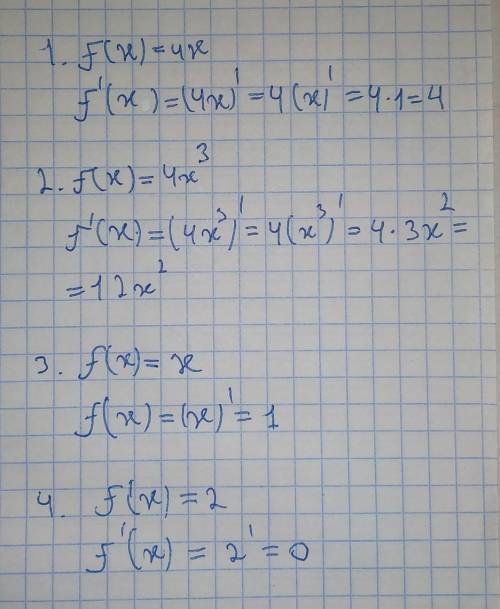 1. f(x)=4x
f'(x)=(4x)'=4(x)'=4·1=4
2. f(x)=4x³
f'(x)=(4x³)'=4(x³)'=4·3x²=
=12x²
3. f(x)=x
f(x)=(x)'=1
4. f(x)=2
f'(x)=2'=0